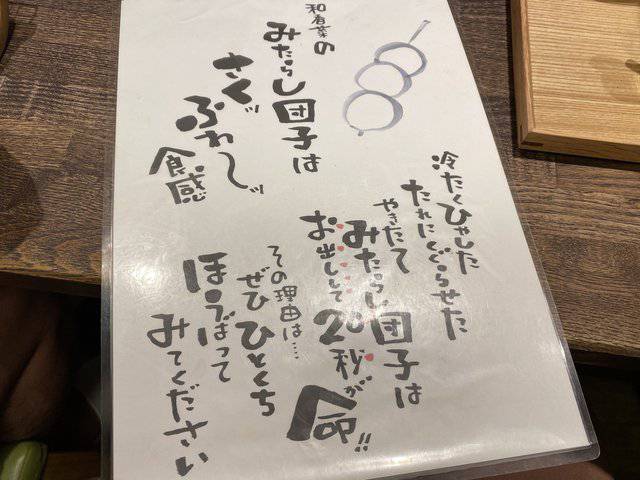 和有菜の
みたらし団子は
さくッ
ふわ〜ッ
食感
冷たくひやした
たれにくぐらせた
やきたて
みたらし団子は
お出しして20秒が命!!
その理由は…
ぜひひとくち
ほうばって
みてください